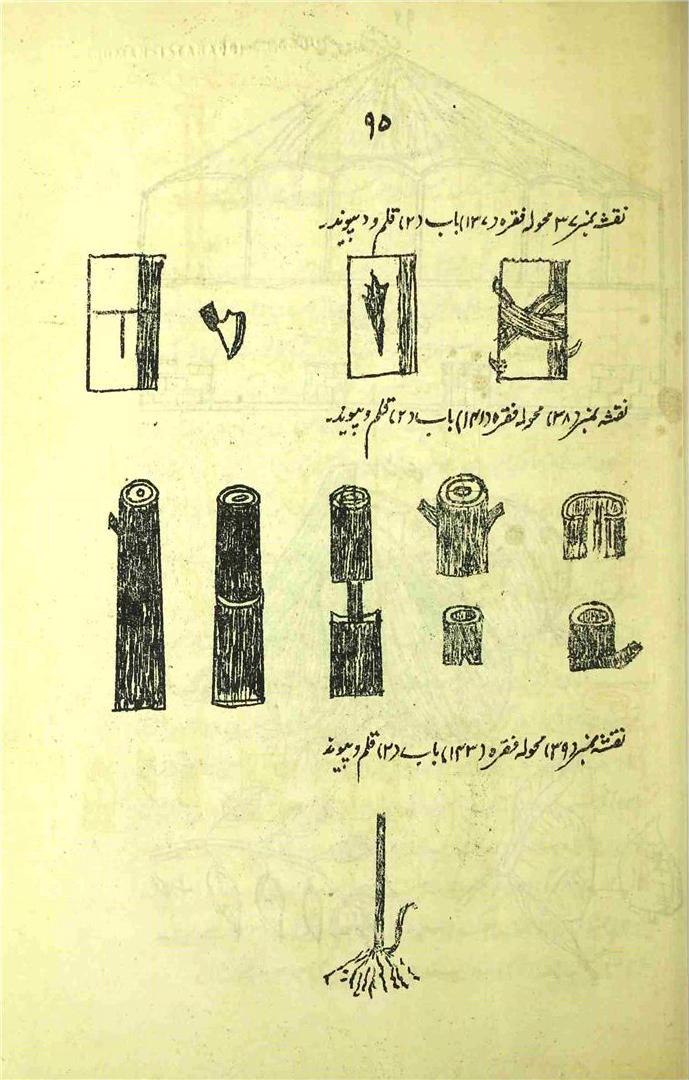 ۹۵
نقشہ نمبر ۳۷ محولہ فقرہ (۱۳۷) باب (۲) قلم و پیوند
نقشہ نمبر (۳۸) محولہ فقرہ (۱۴۱) باب (۲) قلم و پیوند
نقشہ نمبر (۳۹) محولہ فقرہ (۱۴۳) باب (۲) قلم و پیوند